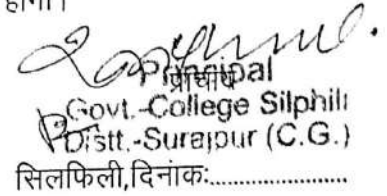 होगा।
Principal
प्राचार्य
Govt.-College Silphili
Distt.-Surajpur (C.G.)
सिलफिली,दिनांकः.....................